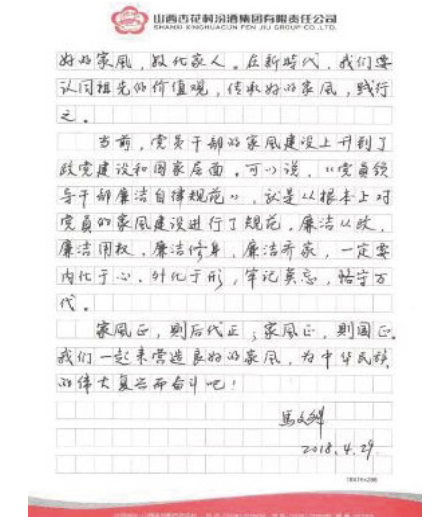 山西杏花村汾酒集团有限责任公司
SHANXI XINGHUACUN FEN JIU GROUP CO.,LTD.
好的家风，教化家人。在新时代，我们要
认同祖先的价值观，传承好的家风，践行
之。
当前，党员干部的家风建设上升到了
政党建设和国家层面。可以说，“党员领
导干部廉洁自律规范”，就是从根本上对
党员的家风建设进行了规范，廉洁从政，
廉洁用权，廉洁修身，廉洁齐家，一定要
内化于心、外化于形，牢记莫忘，恪守万
代。
家风正，则后代正；家风正，则国正。
我们一起来营造良好的家风，为中华民族
的伟大复兴而奋斗吧！
2018.4.29.